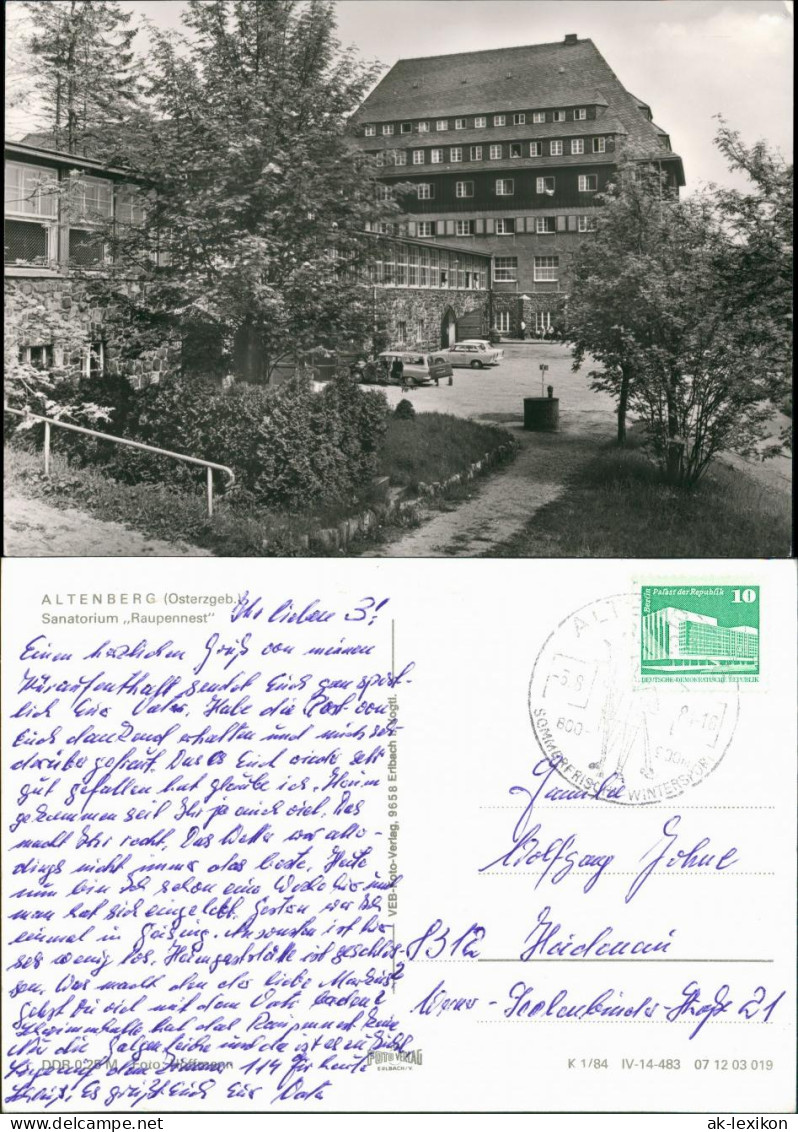 ALTENBERG (Osterzgeb.)
Sanatorium „Raupennest"
Ihr lieben 3!
Einen herzlichen Gruß von meinen
Kuraufenthalt sendet Euch ganz spät-
lich Eur Vater. Habe die Post von
Euch dankend erhalten und mich sehr
darüber gefreut. Das es Euch wieder sehr
gut gefallen hat glaube ich. Herum
gekommen seit Ihr ja auch viel. Das
macht Ihr recht. Das Wetter war aller-
dings nicht immer das beste. Heute
nun bin ich schon eine Woche hier und
man hat sich eingelebt. Gestern war ich
einmal in Geising. Ansonsten ist hier
wenig los. Heimgaststätte ist geschlos-
sen. Was macht den der liebe Markus?
Gehst Du viel mit dem Vater baden?
Schwimmhalle hat das Raupennest keine
Nur die
und da ist es
114 Für heute
Schluß. Es grüßt Euch Eur Vater
DDR 0,25 M Foto: Hoffmann
VEB Foto-Verlag, 9658 Erlbach i. Vogtl.
FOTO VERLAG
ERLBACH/V.
Berlin Palast der Republik 10
DEUTSCHE DEMOKRATISCHE REPUBLIK
ALTE
800-
SOMMERFRISCHE WINTERSPORT
Familie
Wolfgang Johne
8312 Heidenau
Werner-Seelenbinder-Straße 21
K 1/84 IV-14-483 07 12 03 019
delcampe.net
ak-lexikon
ak-lexikon.com